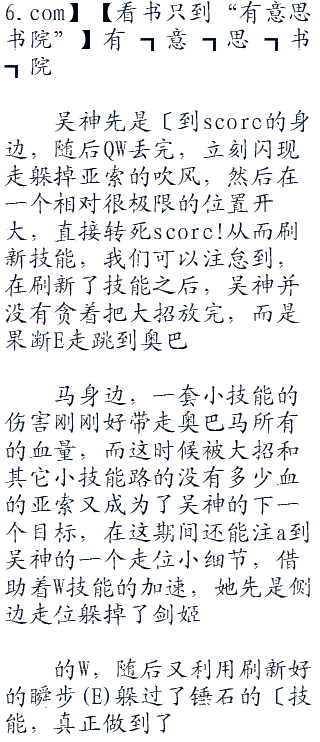 6.com】【看书只到“有意思
书院”】有┓意┓思┓书
┓院
吴神先是〔到scorc的身
边，随后QW丢完，立刻闪现
走躲掉亚索的吹风，然后在
一个相对很极限的位置开
大，直接转死scorc!从而刷
新技能，我们可以注怠到，
在刷新了技能之后，吴神并
没有贪着把大招放完，而是
果断E走跳到奥巴
马身边，一套小技能的
伤害刚刚好带走奥巴马所有
的血量，而这时候被大招和
其它小技能路的没有多少血
的亚索又成为了吴神的下一
个目标，在这期间还能注a到
吴神的一个走位小细节，借
助着W技能的加速，她先是侧
边走位躲掉了剑姬
的W，随后又利用刷新好
的瞬步(E)躲过了锤石的〔技
能，真正做到了